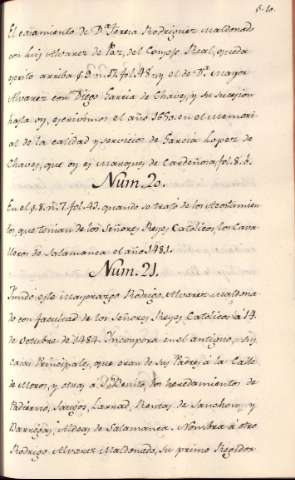 El casamiento de D.ª Teresa Rodriguez Maldonado
con Luis Alvarez de Paz, del Consejo Real, queda
puesto arriba § 9. n. 17. fol. 48. y el de D.ª Mayor
Alvarez con Diego Garcia de Chaves, y su sucesion
hasta oy, escrivimos el año 1670. en el memori-
al de la calidad y servicios de Garcia Lopez de
Chaves, que oy es Marques de Cardeñosa fol. 8. b.
Num. 20.
En el § 8. n. 7. fol. 42. quando se trato de los Acostamien-
tos, que tenian de los Señores Reyes Catolicos, los Cava-
lleros de Salamanca el año 1481.
Num. 21.
Fundo este mayorazgo Rodrigo Alvarez Maldona-
do con facultad de los Señores Reyes Catolicos a 14
de octubre de 1484. Incorpora en el antiguo, sus
casas Principales, que eran de sus Padres a la Calle
de Moros, y otras a S. Benito, los heredamientos de
Padierno, Sargos, Rentas de Sanchon, y
Aldeas de Salamanca. Nombra a otro
Rodrigo Alvarez Maldonado, su primo Regidor